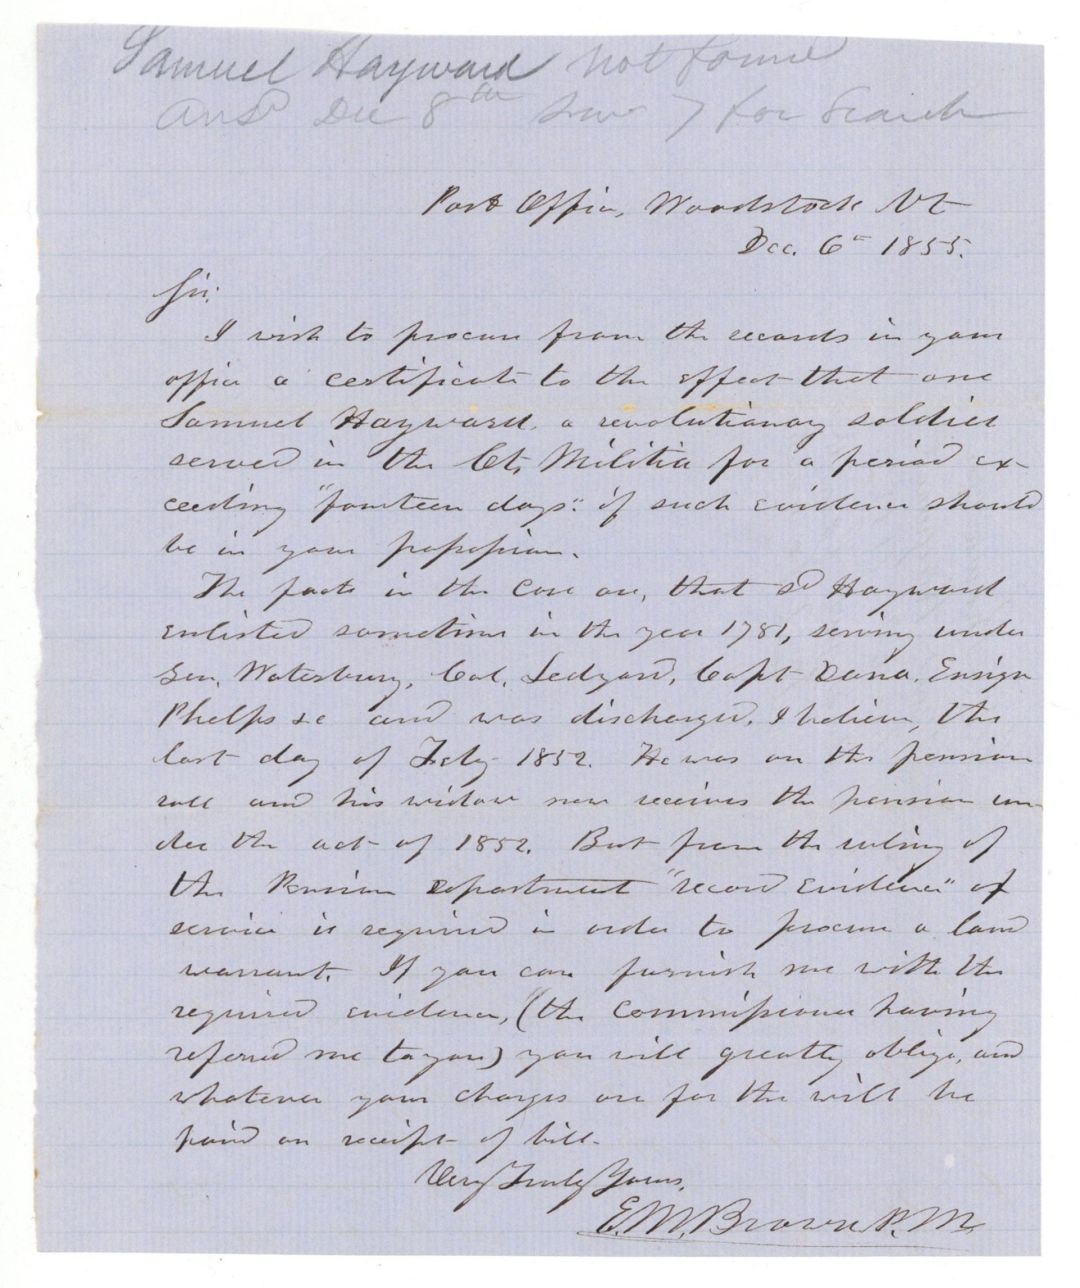 Samuel Hayward not found
ansd Dec 8th 7 for Search
Post Office, Woodstock Vt
Dec. 6th 1855.
Sir.
I wish to procure from the records in your
office a certificate to the effect that one
Samuel Hayward, a revolutionary soldier
served in the Ct. Militia for a period ex-
ceeding "fourteen days": if such evidence should
be in your possession.
The facts in the case are, that sd Hayward
enlisted sometime in the year 1781, serving under
Gen. Waterbury, Col. Ledyard, Capt Dana, Ensign
Phelps &c and was discharged, I believe, the
last day of Feby 1852. He was on the pension
roll and his widow now receives the pension un-
der the act of 1852. But from the ruling of
the Pension department "record evidence" of
service is required in order to procure a land
warrant. If you can furnish me with the
required evidence, (the Commissioner having
referred me to you) you will greatly oblige, and
whatever your charges are for the will be
paid on receipt of bill.
Very Truly Yours,
E. M. Brown P. M.